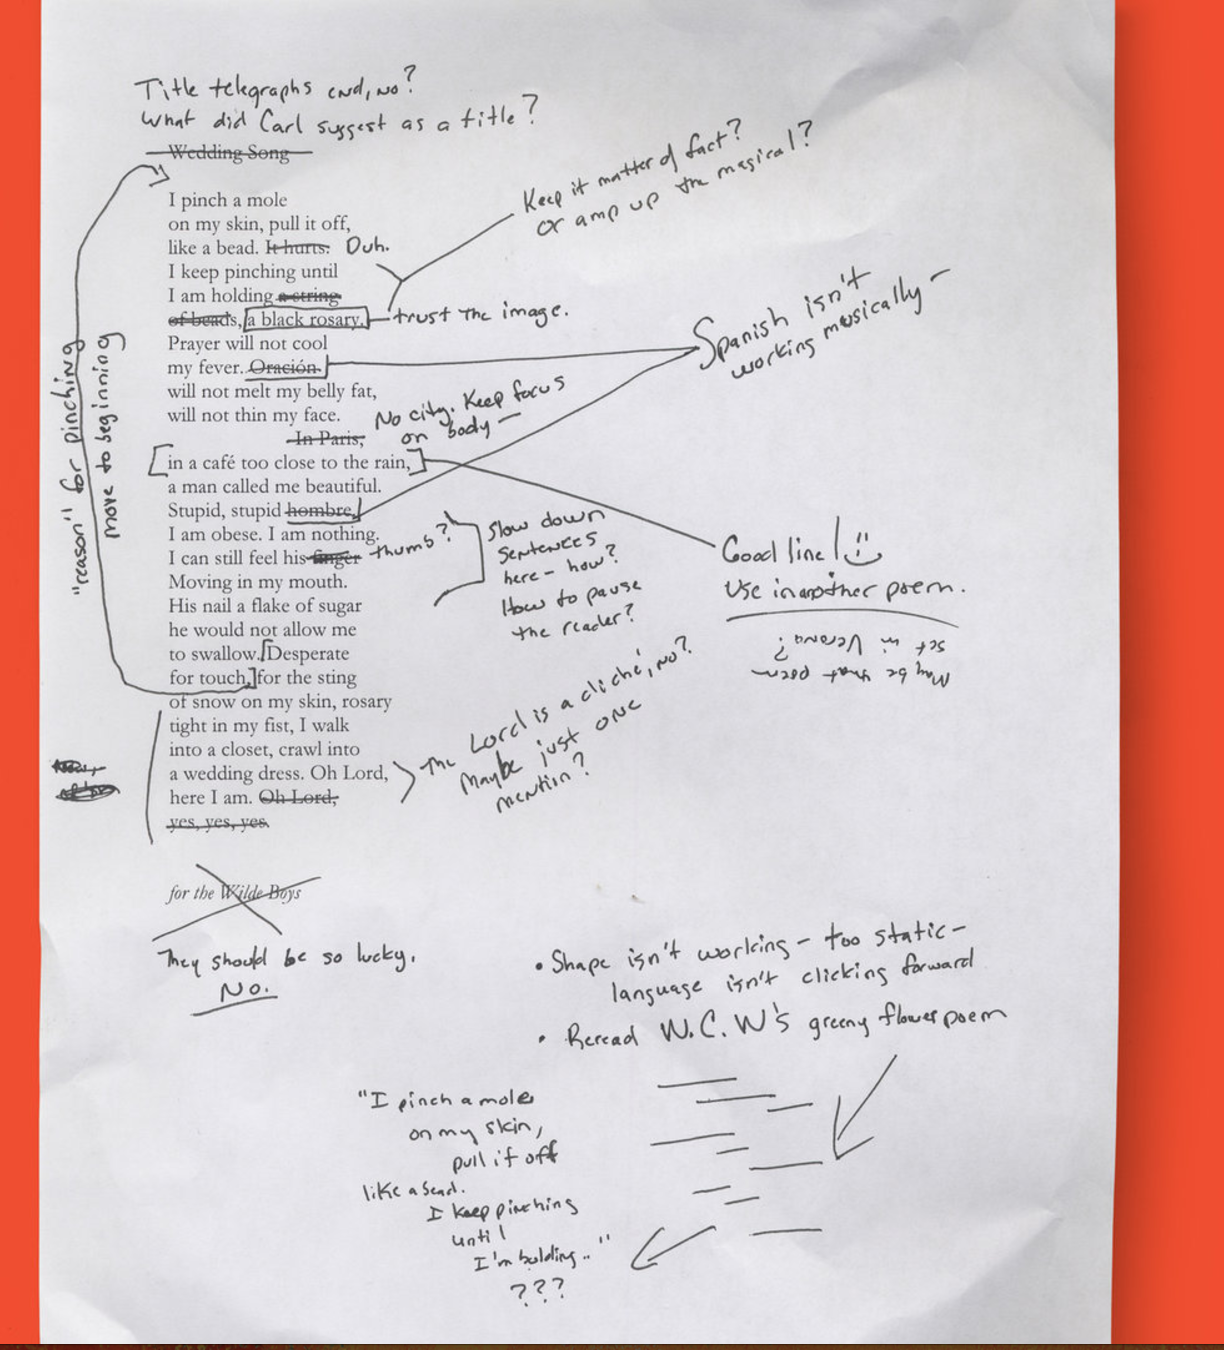 Title telegraphs end, no?
What did Carl suggest as a title?
Wedding Song
I pinch a mole
on my skin, pull it off,
like a bead. It hurts. Duh.
I keep pinching until
I am holding a string
of beads, a black rosary.
Prayer will not cool
my fever. Oración
will not melt my belly fat,
will not thin my face.
In Paris,
in a café too close to the rain,
a man called me beautiful.
Stupid, stupid hombre,
I am obese. I am nothing.
I can still feel his finger thumb?
Moving in my mouth.
His nail a flake of sugar
he would not allow me
to swallow. [Desperate
for touch,] for the sting
of snow on my skin, rosary
tight in my fist, I walk
into a closet, crawl into
a wedding dress. Oh Lord,
here I am. Oh Lord,
yes, yes, yes.
for the Wilde Boys
They should be so lucky.
No.
Keep it matter of fact?
or amp up the magical?
trust the image.
Spanish isn't
working musically —
No city. Keep focus
on body —
"reason" for pinching
move to beginning
Slow down
sentences
here - how?
How to pause
the reader?
Good line! :)
Use in another poem.
May be that poem
set in Verona?
The Lord is a cliché, no?
Maybe just one
mention?
• Shape isn't working - too static -
language isn't clicking forward
• Reread W.C.W's greeny flower poem
"I pinch a mole
on my skin,
pull it off
like a bead.
I keep pinching
until
I'm holding.."
???